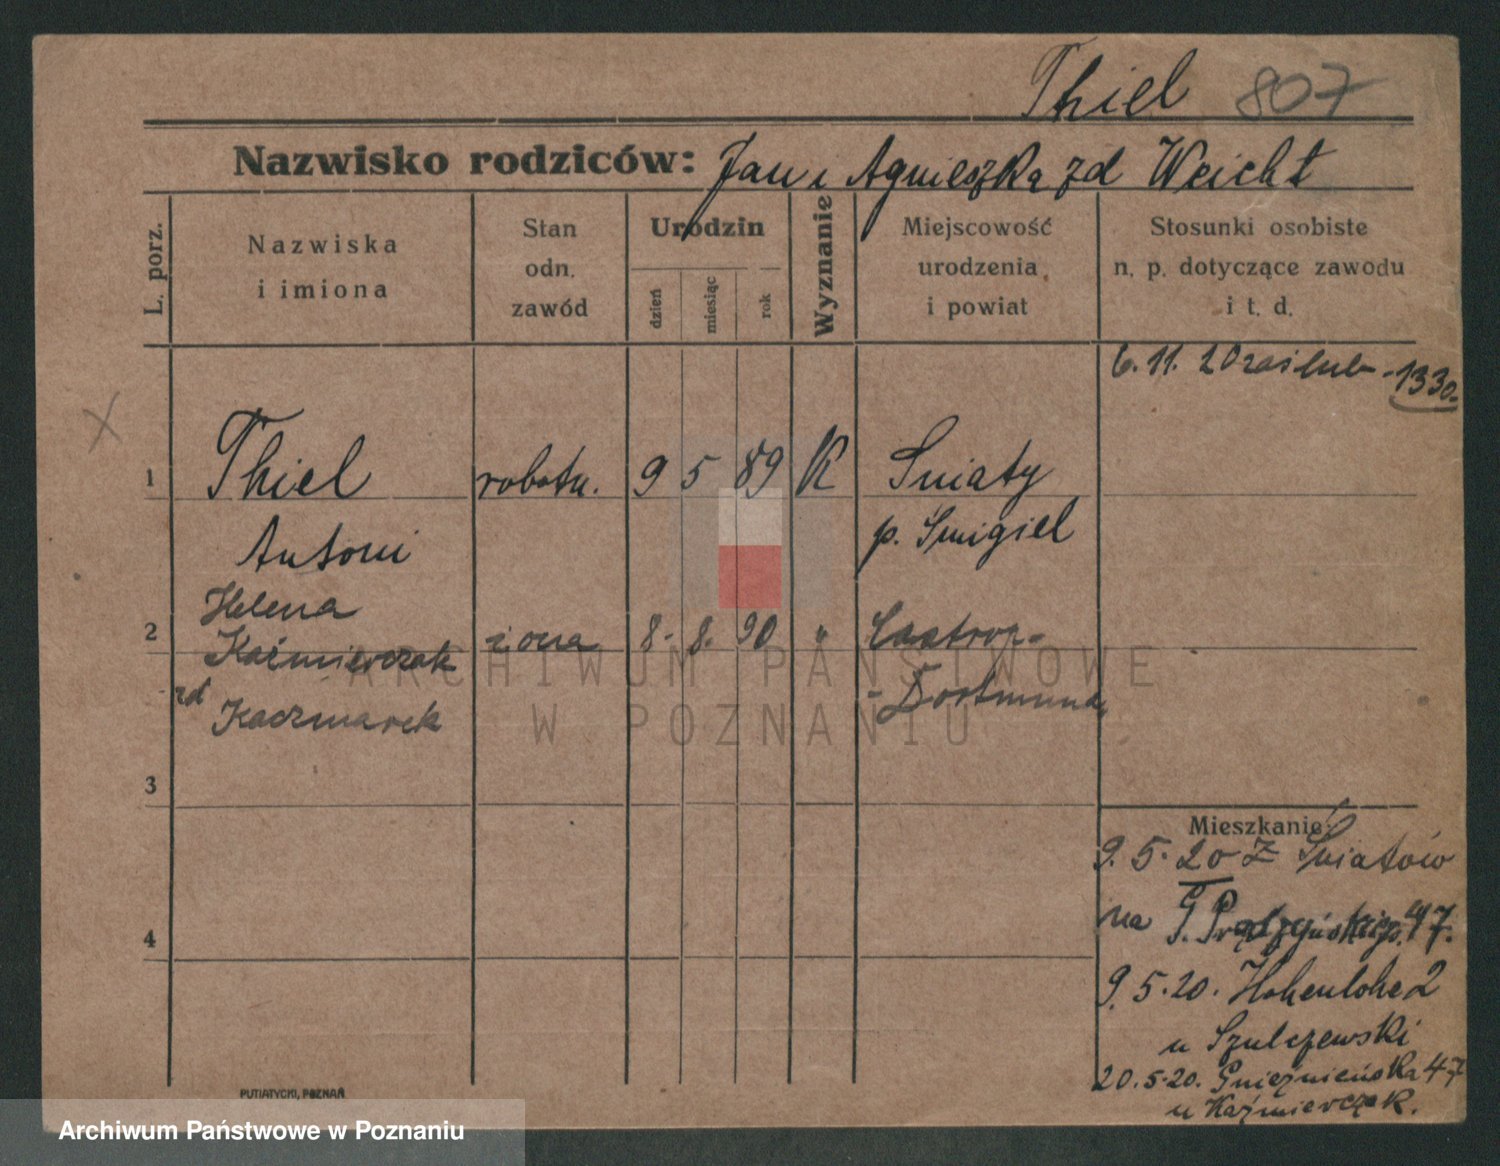 Thiel 807
Nazwisko rodziców: Jan i Agnieszka zd Weicht
L. porz.
Nazwiska
i imiona
Stan
odn.
zawód
Urodzin
dzień
miesiąc
rok
Wyznanie
Miejscowość
urodzenia
i powiat
Stosunki osobiste
n. p. dotyczące zawodu
i t. d.
6. 11. 20 zaślub - 1330.
X
1 Thiel robotn. 9 5 89 K Śniaty
Antoni p. Śmigiel
Helena
2 Kaźmierczak żona 8. 8. 90 " Castrop-
zd Kaczmarek - Dortmund
3
Mieszkanie:
9. 5. 20 z Śniatów
na G. Prądzyńskiego 47.
4
9. 5. 20. Hohenlohe 2
u Szulczewski
20. 5. 20. Gnieźnieńska 47
u Kaźmierczak.
PUTIATYCKI, POZNAŃ
ARCHIWUM PAŃSTWOWE
W POZNANIU
Archiwum Państwowe w Poznaniu